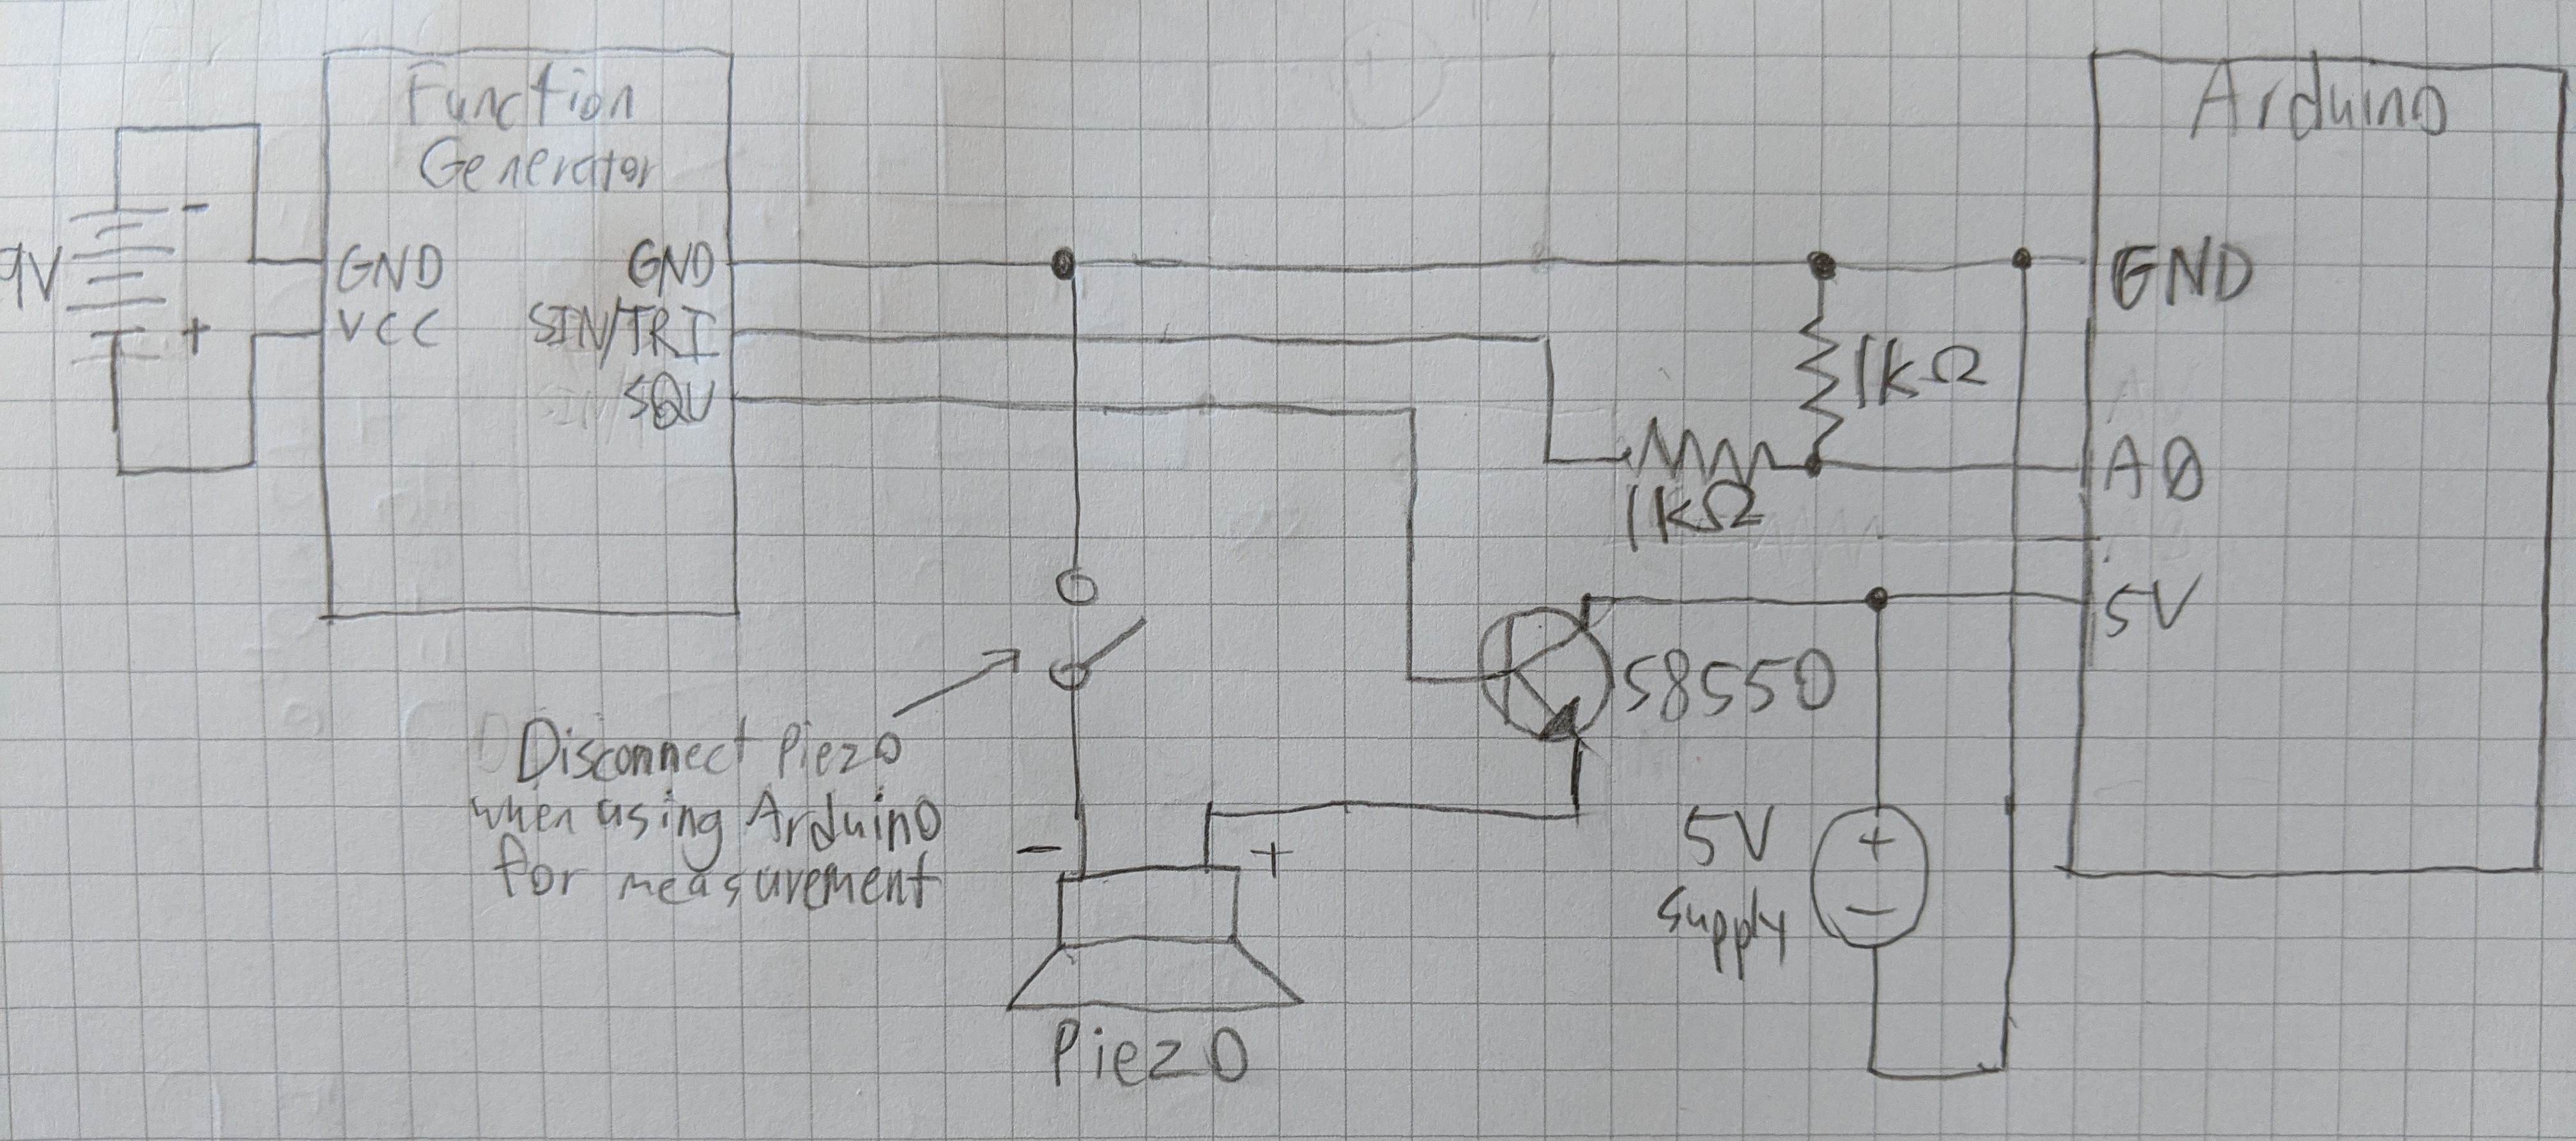 Function
Generator
Arduino
-
9V
+
GND
VCC
GND
SIN/TRI
SQU
GND
1kΩ
A0
1kΩ
5V
S8550
Disconnect Piezo
when using Arduino
for measurement
-
+
Piezo
5V
supply
+
-